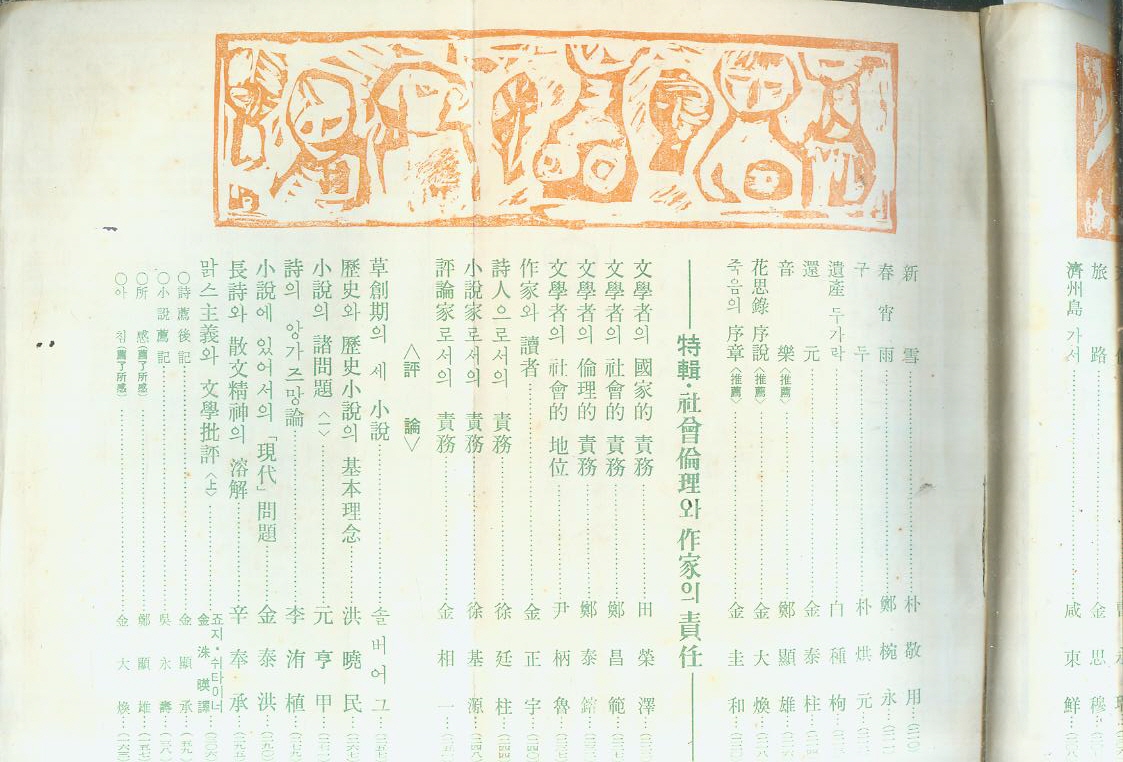 旅路 金思穆
濟州島 가서 咸東鮮
新雪 朴敬用
春宵雨 鄭椀永
구두 朴烘元
遺産 두가락 白種枸
還元 金泰柱
音樂〈推薦〉 鄭顯雄
花思錄 序說〈推薦〉 金大煥
죽음의 序章〈推薦〉 金圭和
特輯·社會倫理와 作家의 責任
文學者의 國家的 責務 田榮澤
文學者의 社會的 責務 鄭昌範
文學者의 倫理的 責務 鄭泰鎔
文學者의 社會的 地位 尹柄魯
作家와 讀者 金正宇
詩人으로서의 責務 徐廷柱
小說家로서의 責務 徐基源
評論家로서의 責務 金相一
〈評論〉
草創期의 세 小說 솔버어그
歷史와 歷史小說의 基本理念 洪曉民
小說의 諸問題〈一〉 元亨甲
詩의 앙가즈망論 李洧植
小說에 있어서의「現代」問題 金泰洪
長詩와 散文精神의 溶解 辛奉承
맑스主義와 文學批評〈上〉 죠지·쉬타이너 金洙暎譯
○詩薦後記 金顯承
○小說薦記 吳永壽
○所感〈薦了所感〉 鄭顯雄
○아침〈薦了所感〉 金大煥